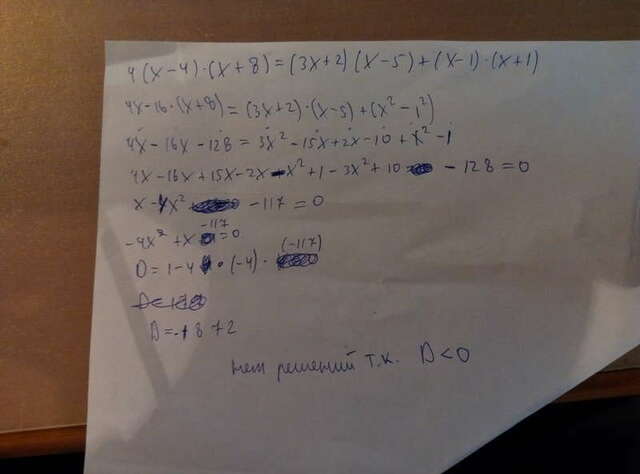 4(x-4)·(x+8)=(3x+2)(x-5)+(x-1)·(x+1)
4x-16·(x+8)=(3x+2)·(x-5)+(x²-1²)
4x-16x-128=3x²-15x+2x-10+x²-1
4x-16x+15x-2x-x²+1-3x²+10-128=0
x-4x²-117=0
-4x²+x-117=0
D=1-4·(-4)·(-117)
D=-1872
нет решений т.к. D<0